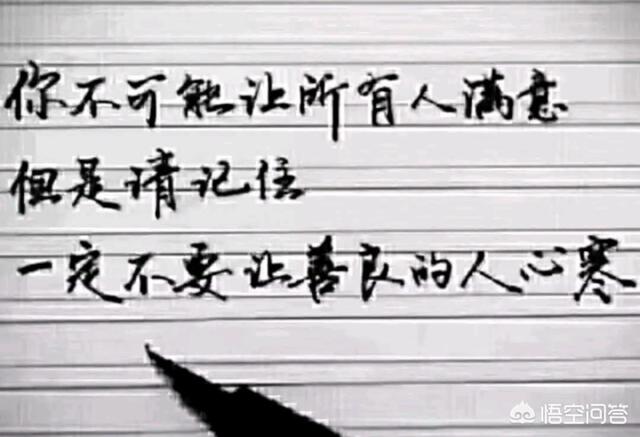 你不可能让所有人满意
但是请记住
一定不要让善良的人心寒
悟空问答